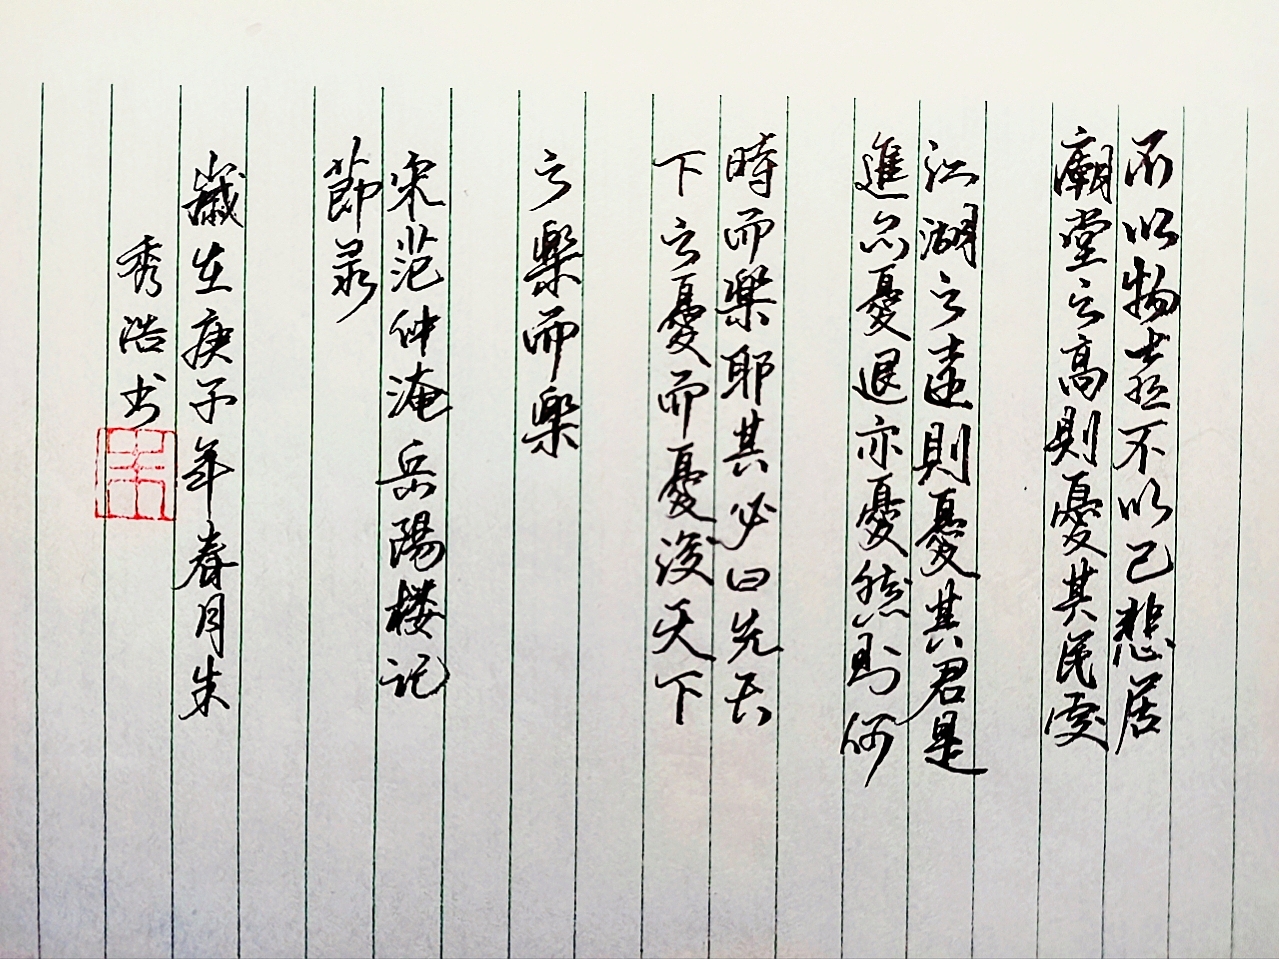 不以物喜不以己悲居
廟堂之高則憂其民處
江湖之遠則憂其君是
進亦憂退亦憂然則何
時而樂耶其必曰先天
下之憂而憂後天下
之樂而樂
宋范仲淹岳陽楼記
節录
歲在庚子年春月朱
秀浩书